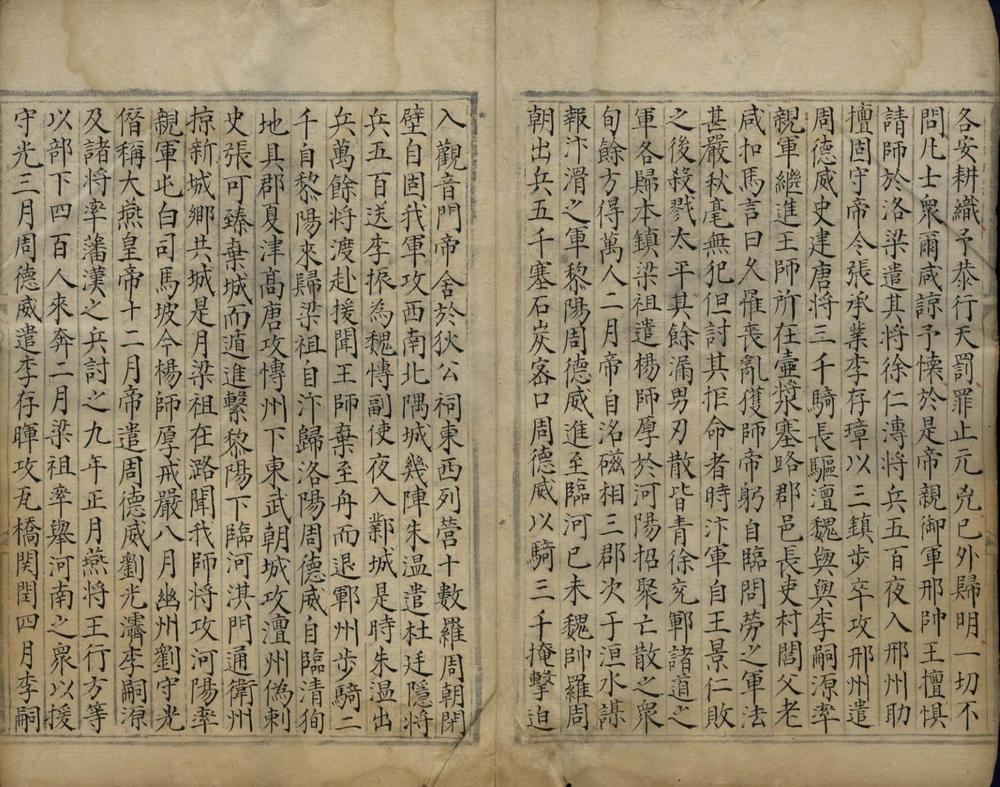 各安耕織予恭行天罰罪止元兇已外歸明一切不
問凡士衆爾咸諒予懷於是帝親御軍邢帥王檀懼
請師於洛梁遣其將徐仁溥將兵五百夜入邢州助
擅固守帝令張承業李存璋以三鎮步卒攻邢州遣
周德威史建唐將三千騎長驅澶魏與與李嗣源率
親軍繼進王師所在壺漿塞路郡邑長吏村閭父老
咸扣馬言曰久罹喪亂獲師帝躬自臨問勞之軍法
甚嚴秋毫無犯但討其拒命者時汴軍自王景仁敗
之後殺戮太平其餘漏男刃散皆青徐兖鄆諸道之
軍各歸本鎮梁祖遣楊師厚於河陽招聚亡散之衆
旬餘方得萬人二月帝自洺磁相三郡次于洹水謀
報汴滑之軍黎陽周德威進至臨河已未魏帥羅周
朝出兵五千塞石炭窑口周德威以騎三千掩擊迫
入觀音門帝舍於狄公祠東西列營十數羅周朝閉
壁自固我軍攻西南北隅城幾陣朱溫遣杜廷隱將
兵五百送李振為魏博副使夜入鄴城是時朱溫出
兵萬餘將渡赴援聞王師棄至舟而退鄆州步騎二
千自黎陽來歸梁祖自汴歸洛陽周德威自臨清狥
地具郡夏津高唐攻博州下東武朝城攻澶州偽刺
史張可臻棄城而遁進繫黎陽下臨河淇門通衛州
掠新城鄉共城是月梁祖在潞聞我師將攻河陽率
親軍屯白司馬坡令楊師厚戒嚴八月幽州劉守光
僭稱大燕皇帝十二月帝遣周德威劉光濬李嗣源
及諸將率藩漢之兵討之九年正月燕將王行方等
以部下四百人來奔二月梁祖率舉河南之衆以援
守光三月周德威遣李存暉攻瓦橋関閏四月李嗣